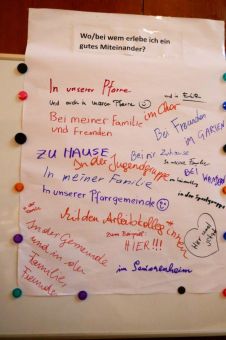 Wo/bei wem erlebe ich ein
gutes Miteinander?
In unserer Pfarre
und auch in unserer Pfarre
und in
Bei meiner Familie im Chor
und Freunden
Bei Freunden
im GARTEN
ZU HAUSE
Bei mir Zuhause
In der Jugendgruppe
In meiner Familie
In meiner Familie
BEI
In unserer Pfarrgemeinde
in der Sportgruppe
Mit den Arbeitskolleg*innen
zum Beispiel:
HIER!!!
In der Gemeinde
und in der
Familie
Freunde
im Seniorenheim
Hier und